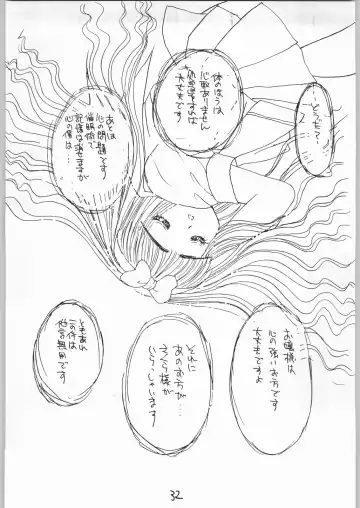 どうだ?
体のほうは
心配ありません
処置すれば
大丈夫です
あとは
心の問題です
催眠術で
記憶は消せますが
心の傷は…
お嬢様は
心の強いお方です
大丈夫ですよ
それに
あのお方が…
さくら様が
いらっしゃいます
ともあれ
この件は
他言無用です
32